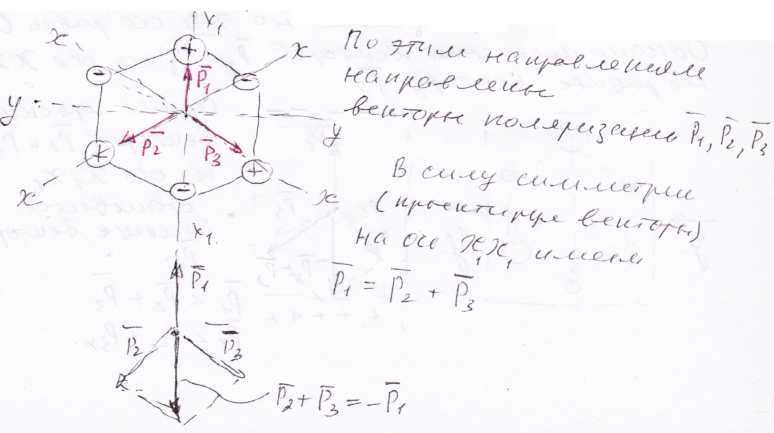 x₁
x
x
+
−
−
P̄₁
y
y
P̄₂
P̄₃
+
+
−
x
x
x₁
По этим направлениям
направлены
векторы поляризации P̄₁, P̄₂, P̄₃
В силу симметрии
(проектируя векторы)
на ось X₁X₁ имеем
P̄₁ = P̄₂ + P̄₃
P̄₁
P̄₂
P̄₃
P̄₂ + P̄₃ = −P̄₁